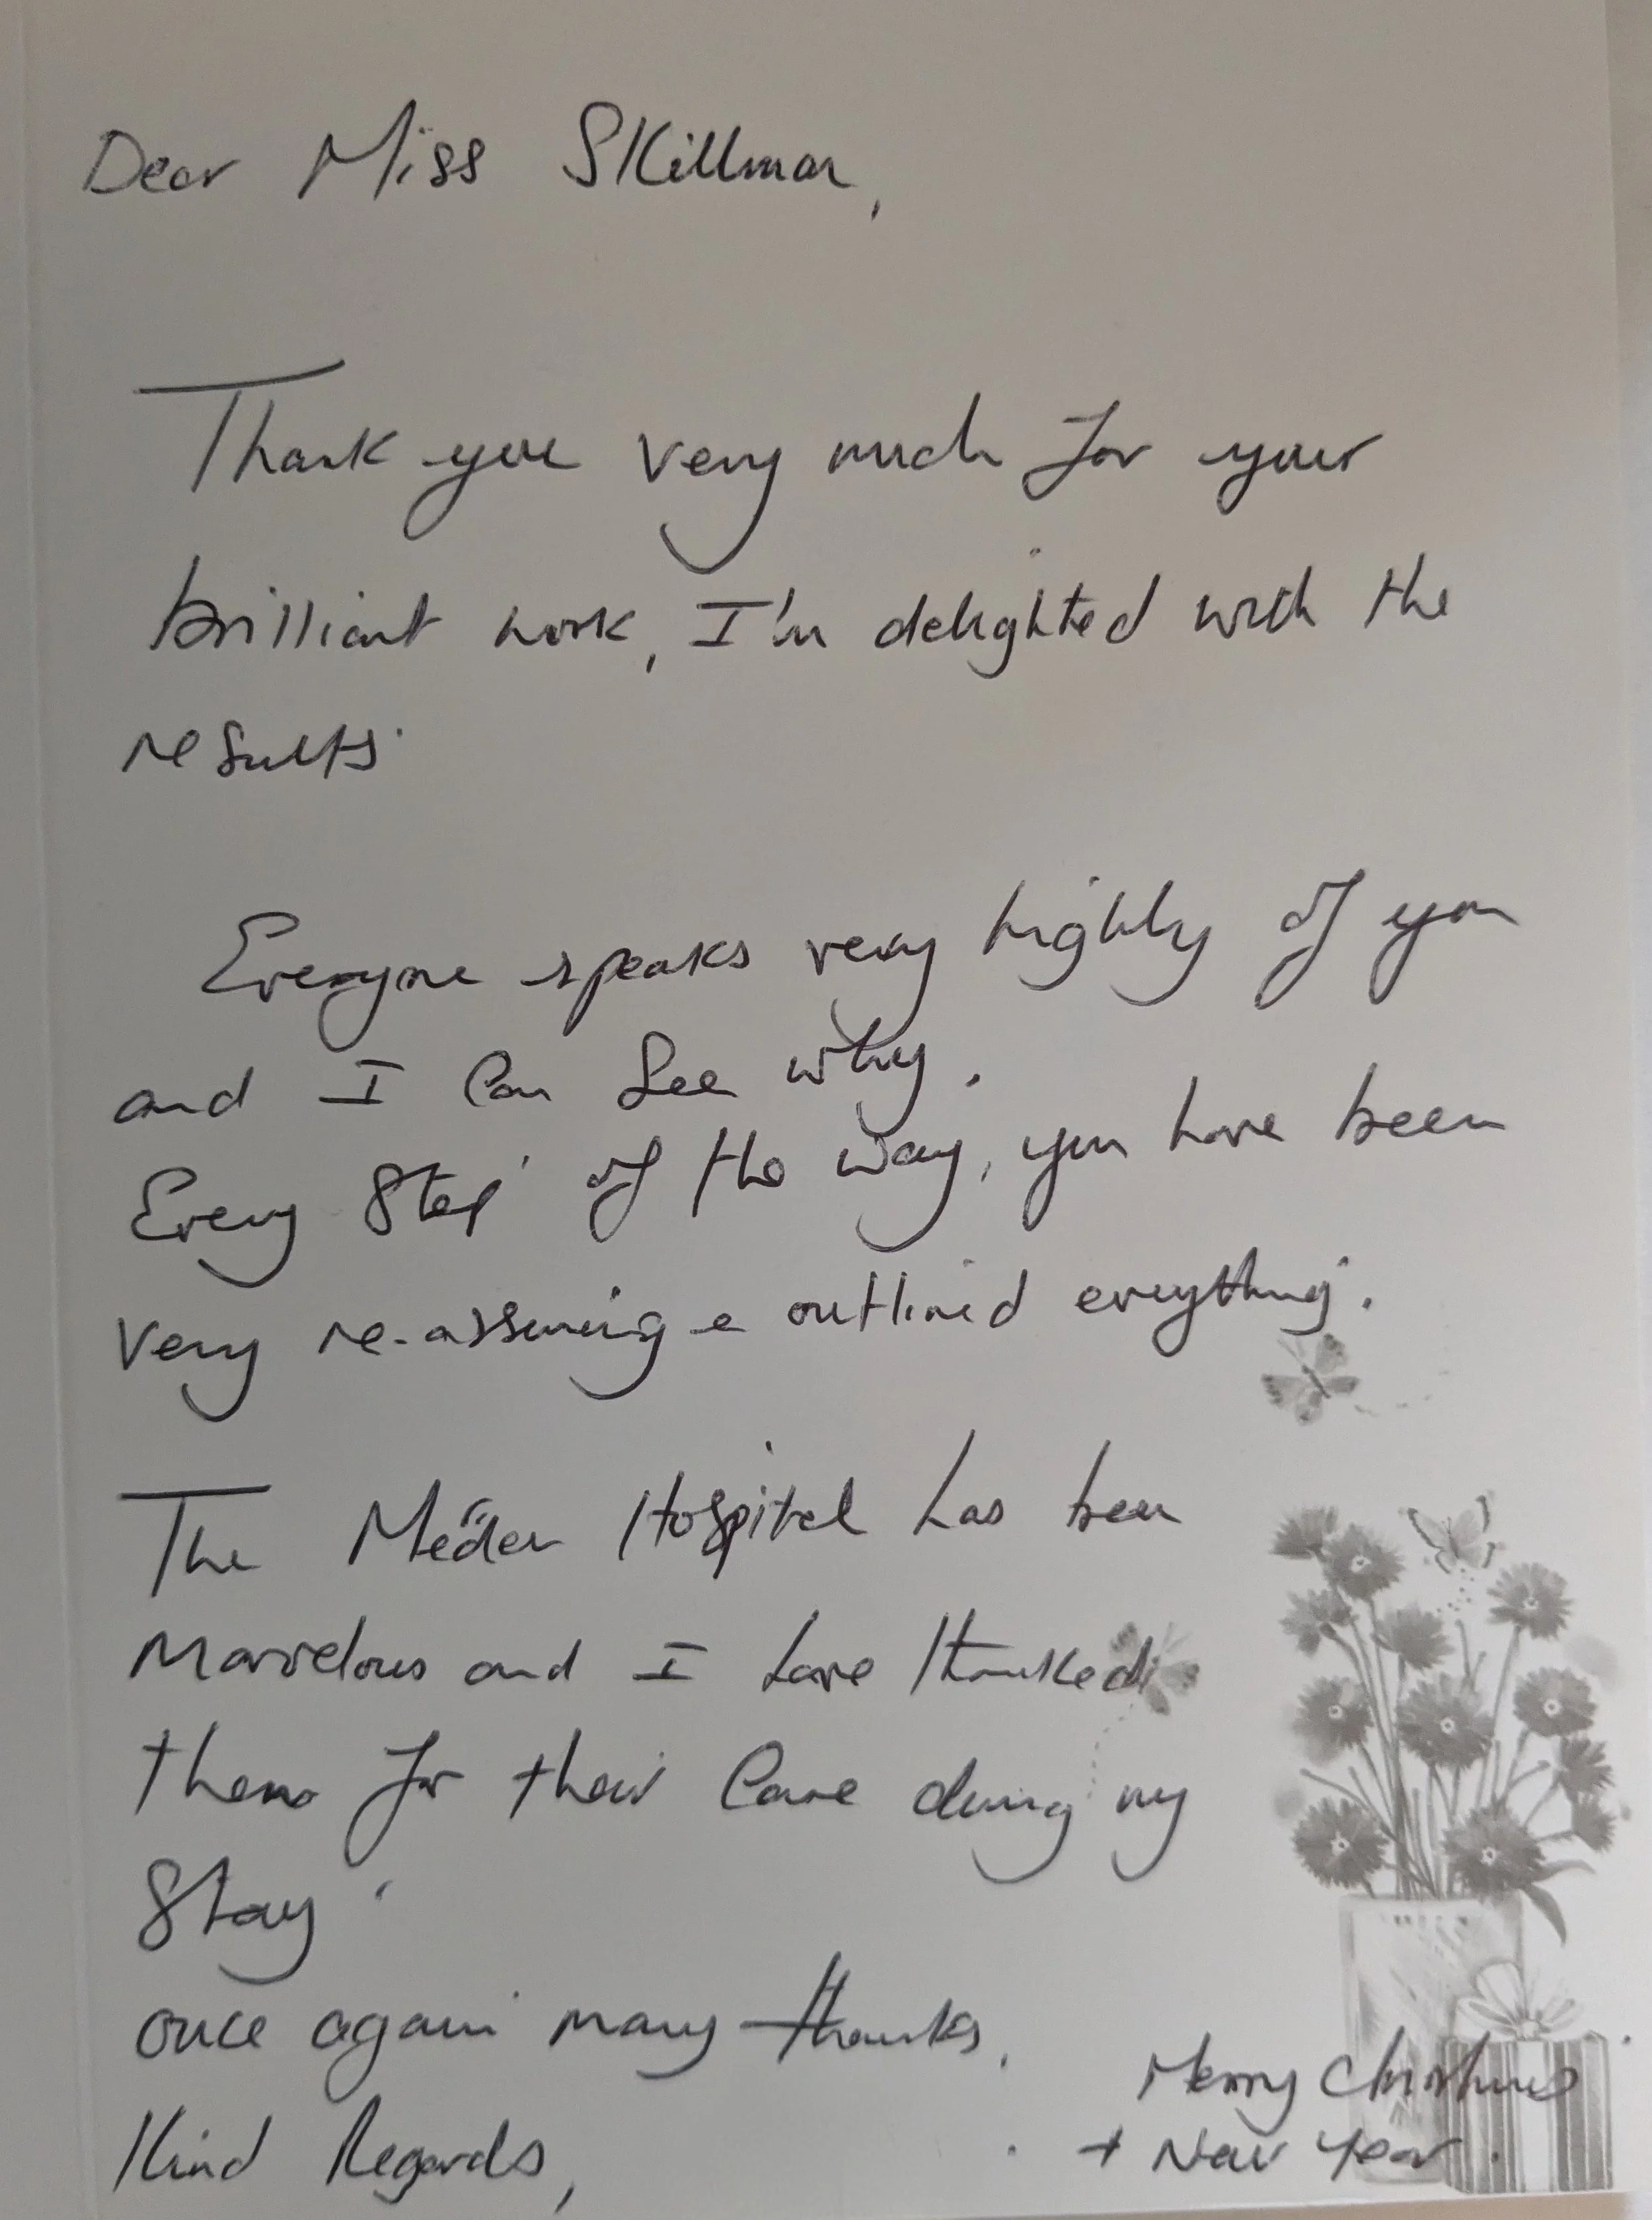 Dear Miss Skillman,
Thank you very much for your
brilliant work, I'm delighted with the
results.
Everyone speaks very highly of you
and I can see why.
Every step of the way, you have been
very re-assuring e outlined everything.
The Hospital has been
Marvelous and I have thanked
them for their care during my
stay.
once again many thanks.
Kind Regards,
Merry Christmas
+ New Year.